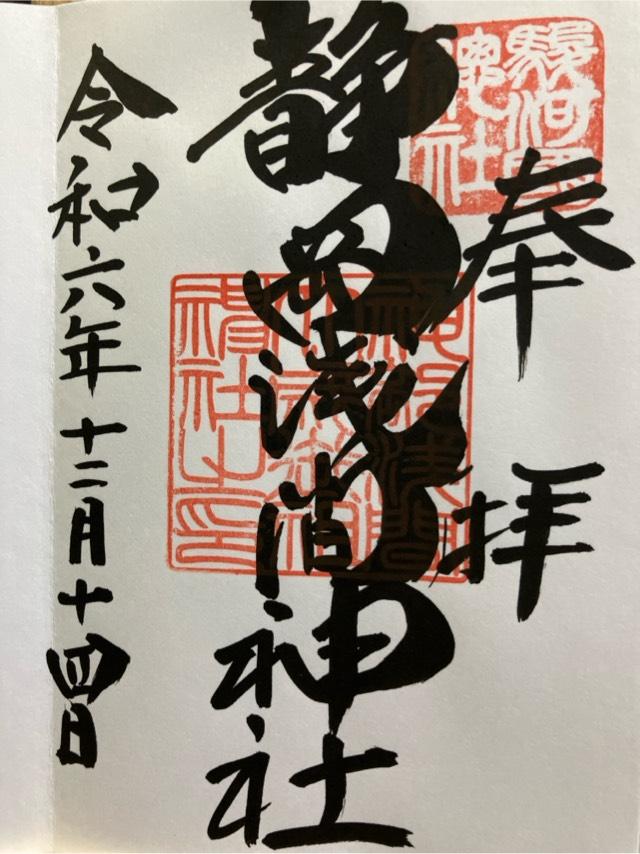 奉拝
駿河國
總社
静岡浅間神社
令和六年十二月十四日